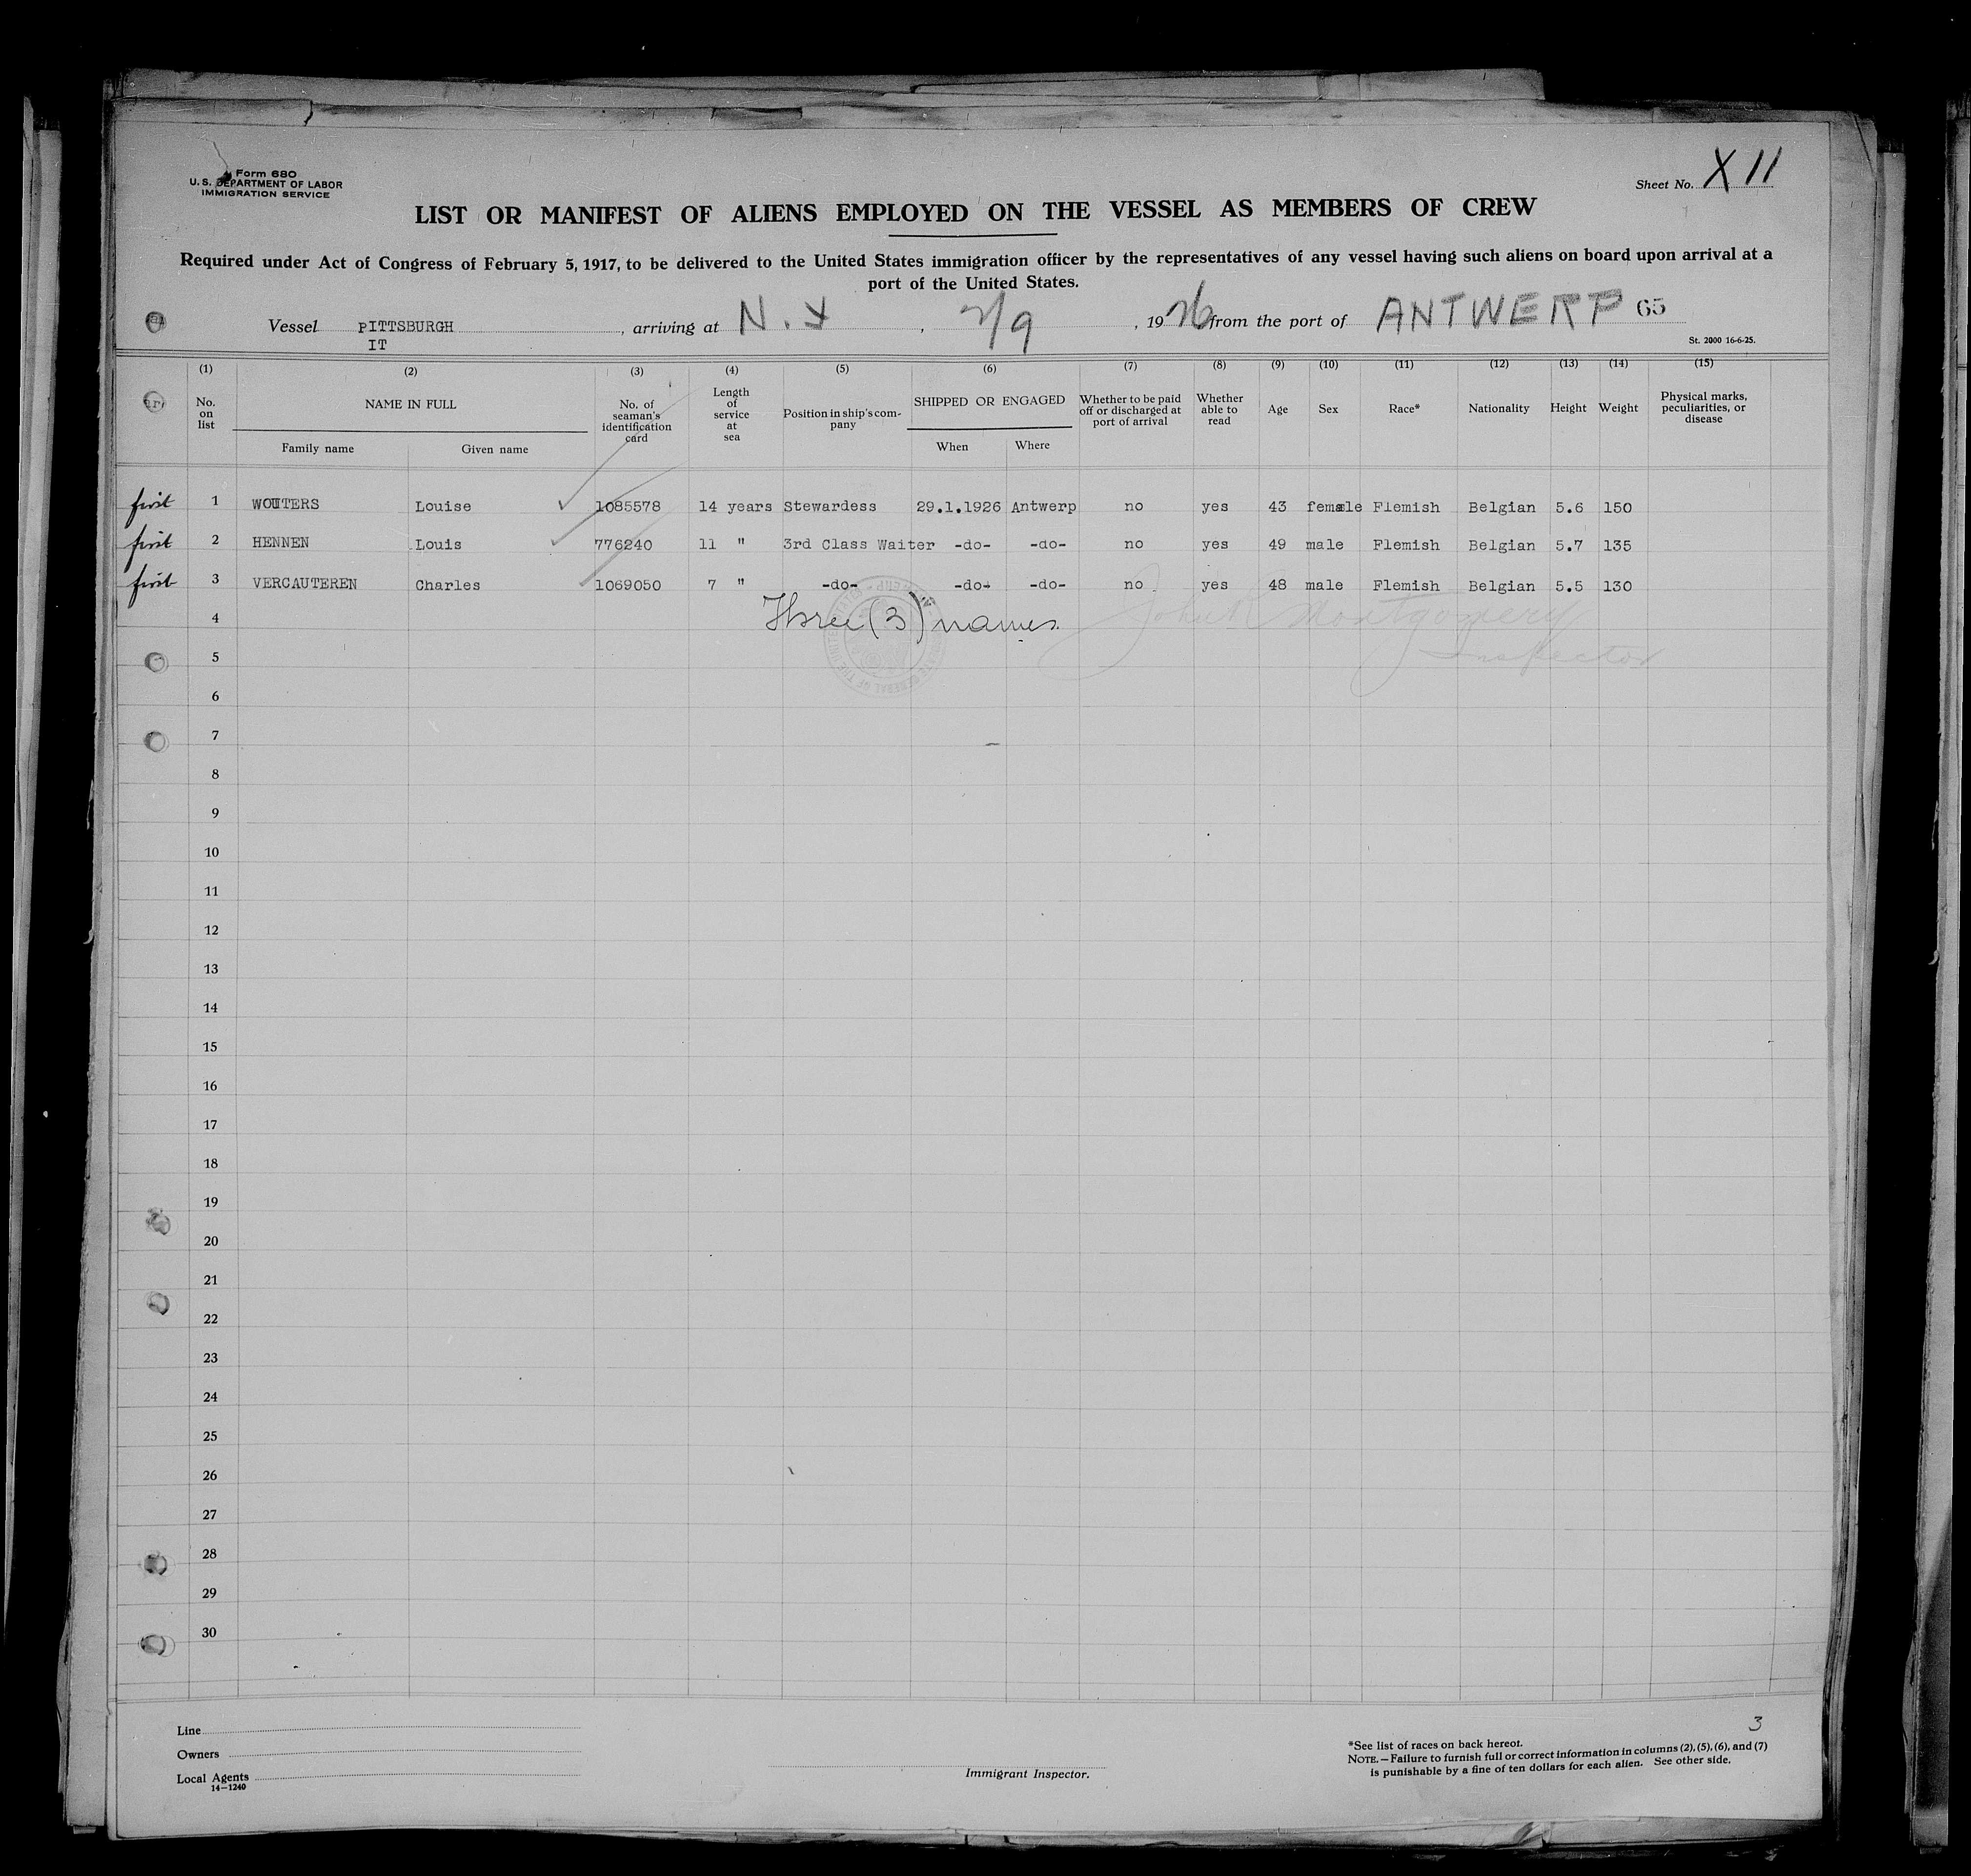 Form 680
U. S. DEPARTMENT OF LABOR
IMMIGRATION SERVICE
Sheet No. X 11
LIST OR MANIFEST OF ALIENS EMPLOYED ON THE VESSEL AS MEMBERS OF CREW
Required under Act of Congress of February 5, 1917, to be delivered to the United States immigration officer by the representatives of any vessel having such aliens on board upon arrival at a
port of the United States.
Vessel PITTSBURGH, arriving at N.Y, 2/9, 1926 from the port of ANTWERP 65
IT
St. 2000 16-6-25.
(1) (2) (3) (4) (5) (6) (7) (8) (9) (10) (11) (12) (13) (14) (15)
No. on list NAME IN FULL Family name Given name No. of seaman's identification card Length of service at sea Position in ship's company SHIPPED OR ENGAGED When Where Whether to be paid off or discharged at port of arrival Whether able to read Age Sex Race* Nationality Height Weight Physical marks, peculiarities, or disease
first 1 WOUTERS Louise 1085578 14 years Stewardess 29.1.1926 Antwerp no yes 43 female Flemish Belgian 5.6 150
first 2 HENNEN Louis 776240 11 " 3rd Class Waiter -do- -do- no yes 49 male Flemish Belgian 5.7 135
first 3 VERCAUTEREN Charles 1069050 7 " -do- -do- -do- no yes 48 male Flemish Belgian 5.5 130
4 Three (3) names. Montgomery
5 Inspector
6
7
8
9
10
11
12
13
14
15
16
17
18
19
20
21
22
23
24
25
26
27
28
29
30
3
Line
Owners
Local Agents
14—1240
Immigrant Inspector.
*See list of races on back hereof.
NOTE.—Failure to furnish full or correct information in columns (2), (5), (6), and (7)
is punishable by a fine of ten dollars for each alien. See other side.